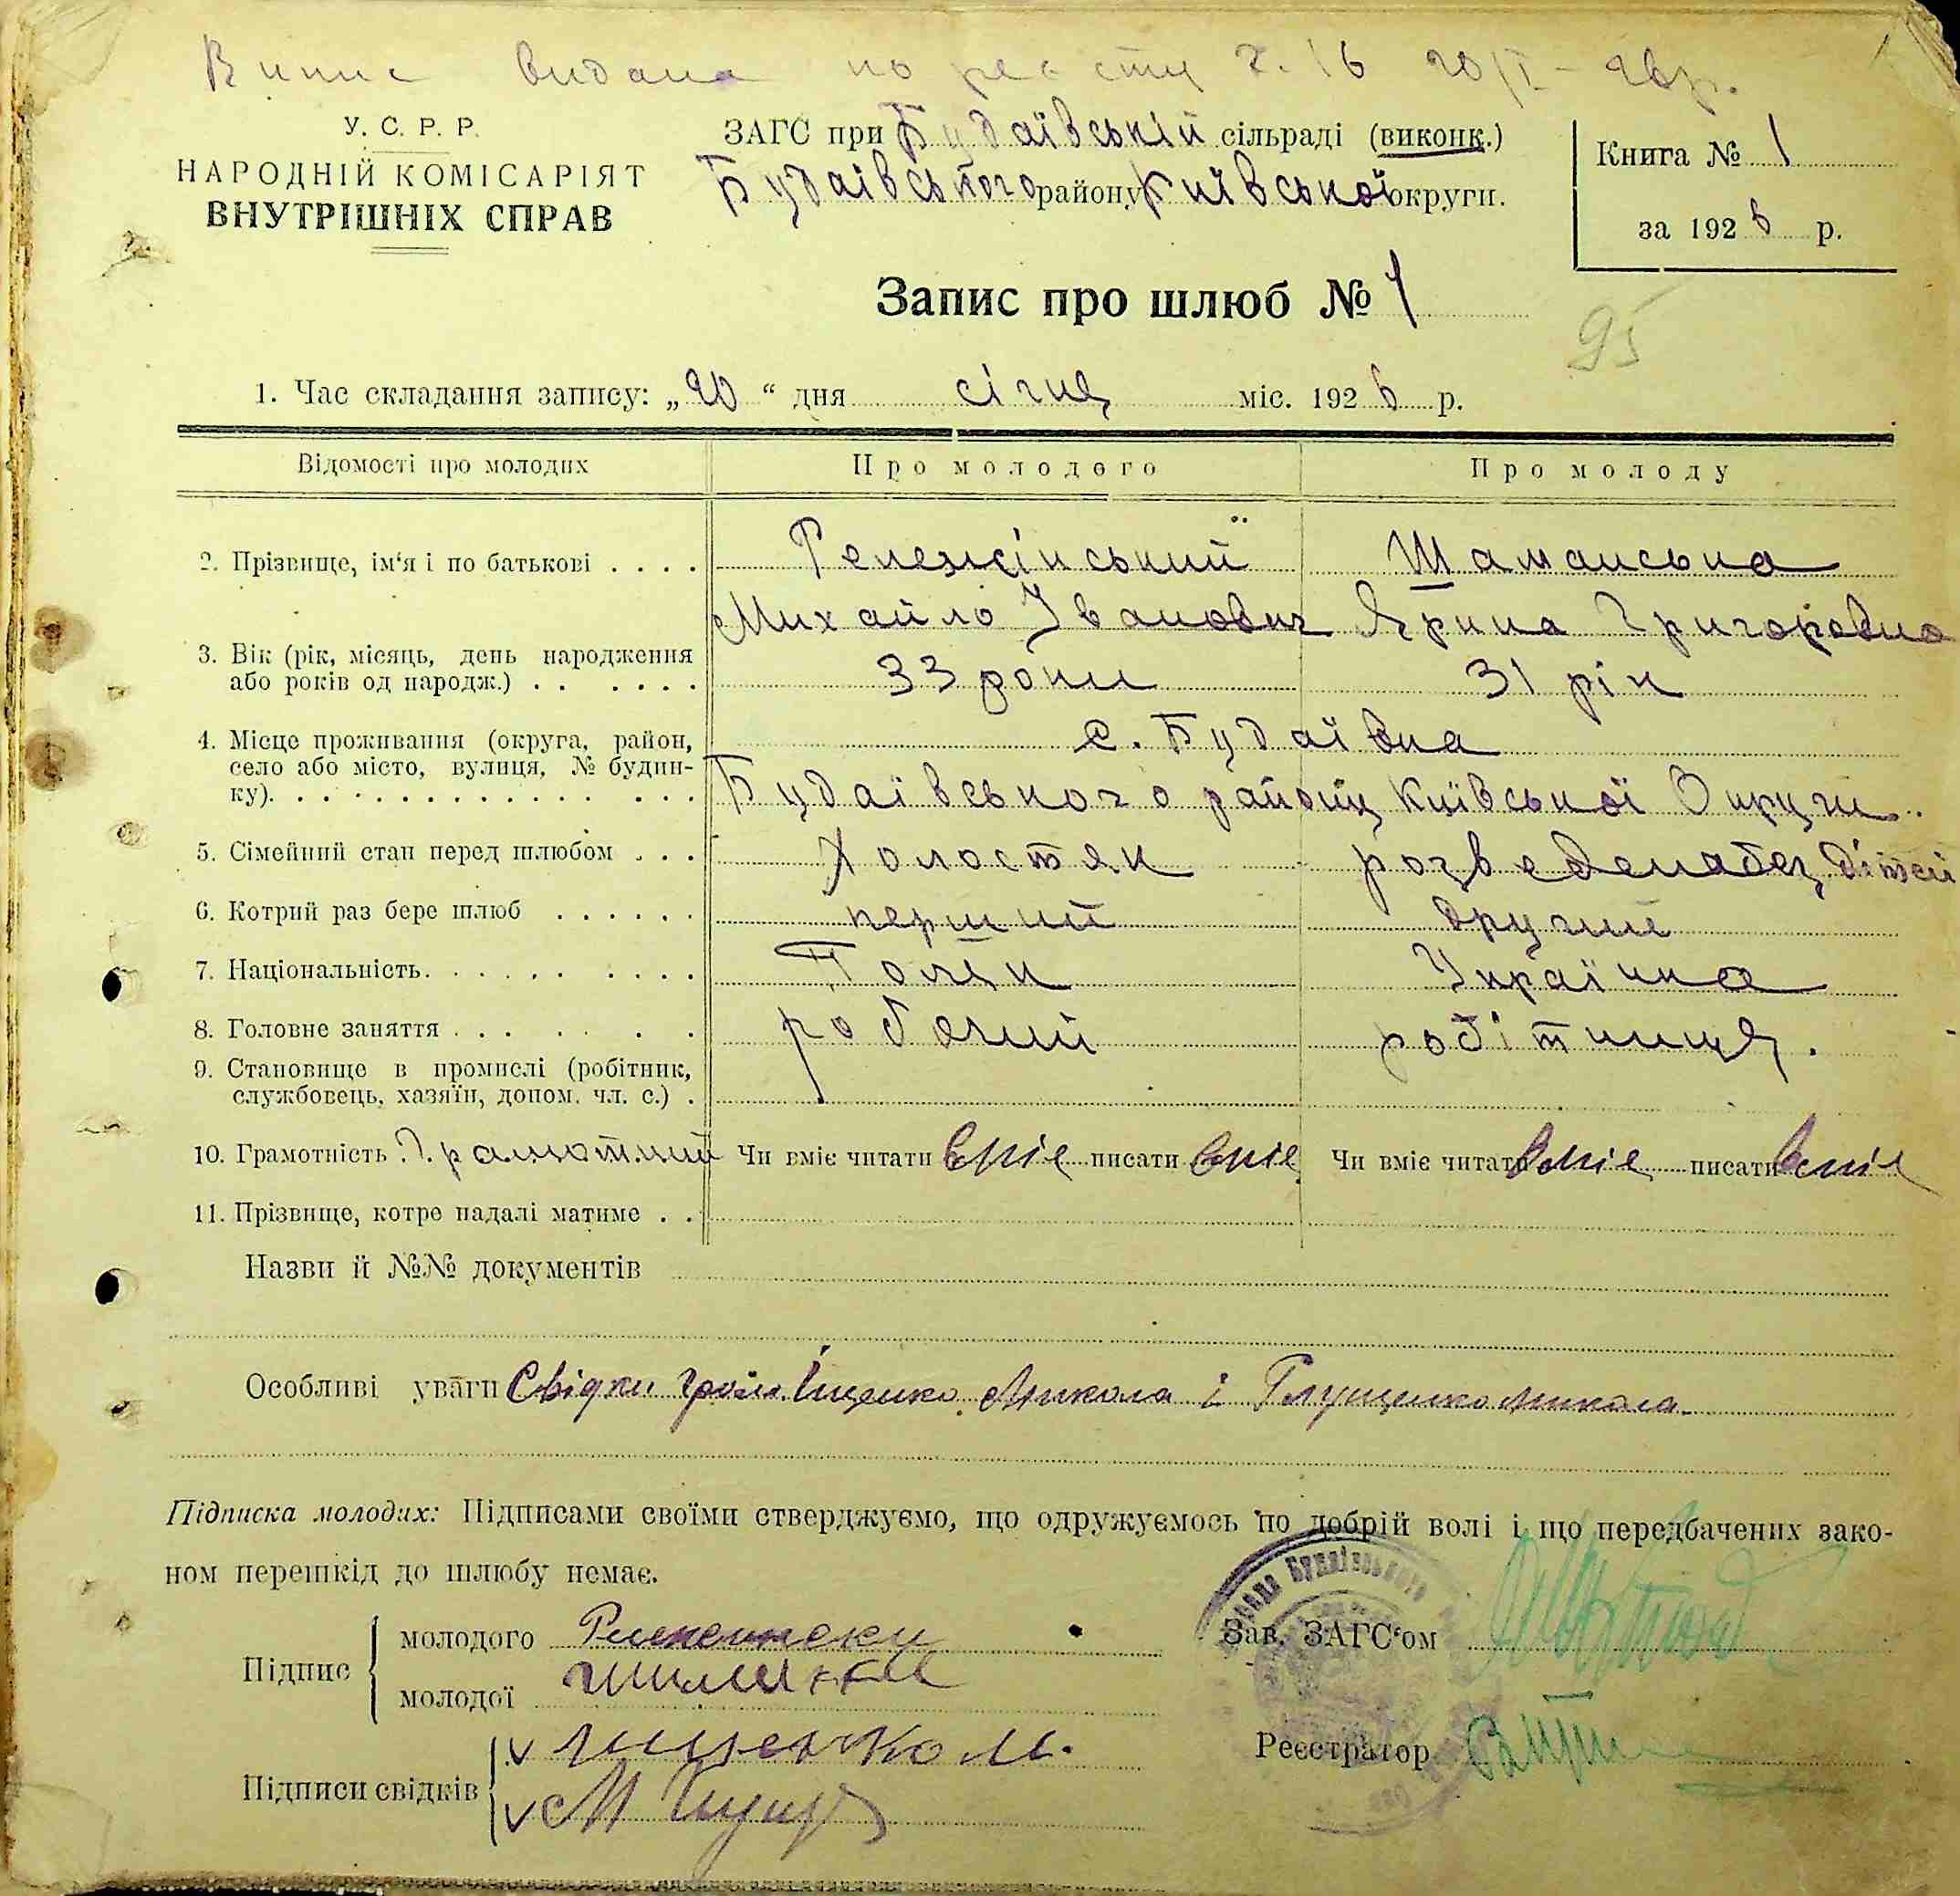 Випис видана по реєсту ч. 16 20/I - 26 р.
У. С. Р. Р.
НАРОДНІЙ КОМІСАРІЯТ
ВНУТРІШНІХ СПРАВ
ЗАГС при Будаївській сільраді (виконк.)
Будаївського району Київської округи.
Книга № 1
за 1926 р.
Запис про шлюб № 1
95
1. Час складання запису: „20“ дня січня міс. 1926 р.
Відомості про молодих Про молодого Про молоду
2. Прізвище, ім‘я і по батькові . . . . Рележінський Шаманська
Михайло Іванович Ярина Григоровна
3. Вік (рік, місяць, день народження
або років од народж.) . . . . . . 33 роки 31 рік
4. Місце проживання (округа, район, с. Будаївка
село або місто, вулиця, № будин-
ку). . . . Будаївського району Київської Округи.
5. Сімейний стан перед шлюбом . . . Холостяк розведена без дітей
6. Котрий раз бере шлюб . . . . . . перший другий
7. Національність. . . . . . . . . . Поляк Українка
8. Головне заняття . . . . . . робочий робітниця.
9. Становище в промислі (робітник,
службовець, хазяїн, допом. чл. с.) .
10. Грамотність Грамотний Чи вміє читати вміє писати вміє Чи вміє читати вміє писати вміє
11. Прізвище, котре надалі матиме . .
Назви й №№ документів
Особливі уваги Свідки гром. Іщенко Микола і Глущенко Микола
Підписка молодих: Підписами своїми стверджуємо, що одружуємось по добрій волі і що передбачених зако-
ном перешкід до шлюбу немає.
Підпис
молодого
молодої
Зав. ЗАГС‘ом
Підписи свідків
Іщенко М.
М
Реєстратор